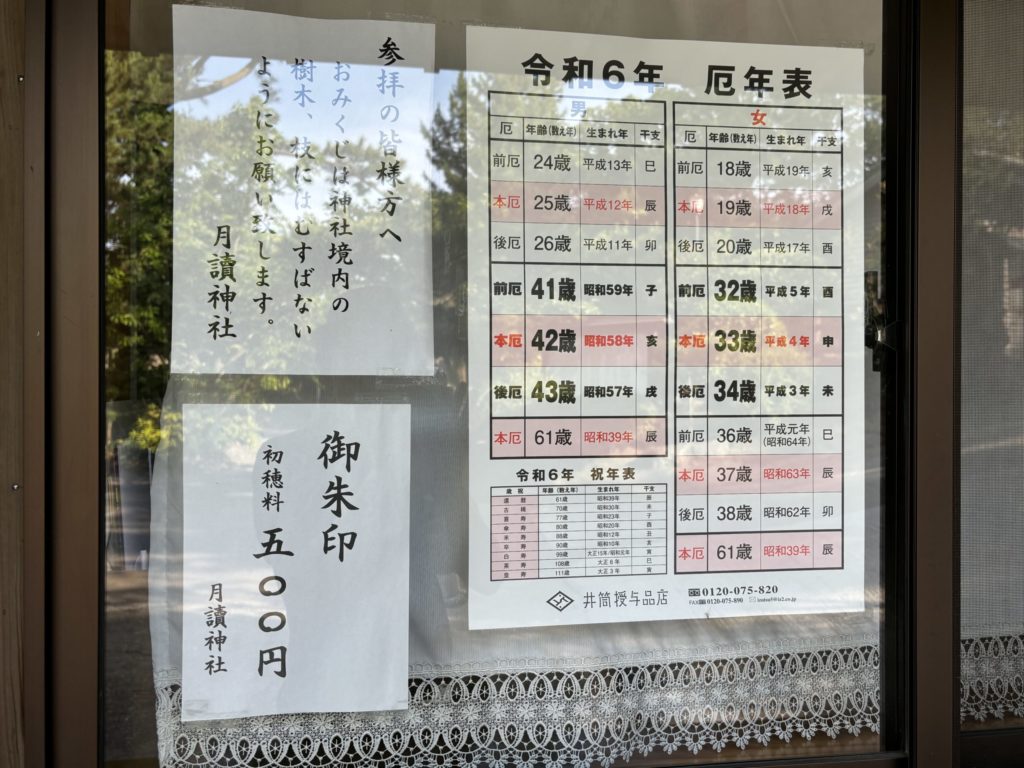 参拝の皆様方へ
おみくじは神社境内の
樹木、枝にはむすばない
ようにお願い致します。
月讀神社
御朱印
初穂料 五〇〇円
月讀神社
令和6年 厄年表
男
厄 年齢(数え年) 生まれ年 干支
前厄 24歳 平成13年 巳
本厄 25歳 平成12年 辰
後厄 26歳 平成11年 卯
前厄 41歳 昭和59年 子
本厄 42歳 昭和58年 亥
後厄 43歳 昭和57年 戌
本厄 61歳 昭和39年 辰
女
厄 年齢(数え年) 生まれ年 干支
前厄 18歳 平成19年 亥
本厄 19歳 平成18年 戌
後厄 20歳 平成17年 酉
前厄 32歳 平成5年 酉
本厄 33歳 平成4年 申
後厄 34歳 平成3年 未
前厄 36歳 平成元年(昭和64年) 巳
本厄 37歳 昭和63年 辰
後厄 38歳 昭和62年 卯
本厄 61歳 昭和39年 辰
令和6年 祝年表
歳祝 年齢(数え年) 生まれ年 干支
還暦 61歳 昭和39年 辰
古稀 70歳 昭和30年 未
喜寿 77歳 昭和23年 子
傘寿 80歳 昭和20年 酉
米寿 88歳 昭和12年 丑
卒寿 90歳 昭和10年 亥
白寿 99歳 大正15年/昭和元年 寅
茶寿 108歳 大正6年 巳
皇寿 111歳 大正3年 寅
井筒授与品店
0120-075-820
FAX 0120-075-890